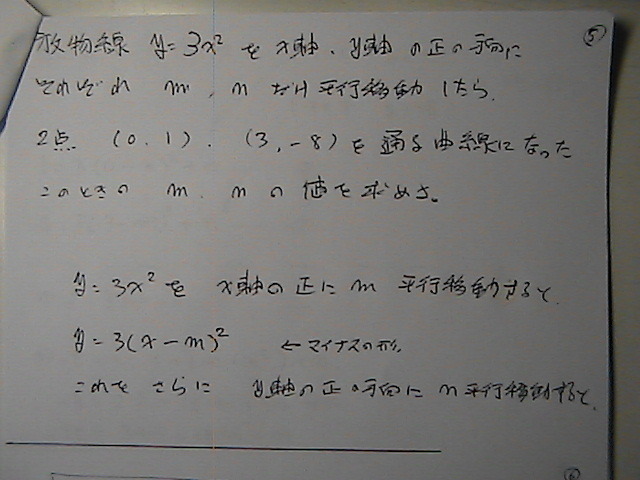 放物線 y=3x² を x軸、y軸の正の方向に ⑤
それぞれ m、n だけ平行移動したら、
2点 (0,1)、(3,-8)を通る曲線になった
このときの m、n の値を求めよ。
y=3x² を x軸の正に m 平行移動すると、
y=3(x-m)² ←マイナスの形。
これをさらに y軸の正の方向に n 平行移動すると、
⑥